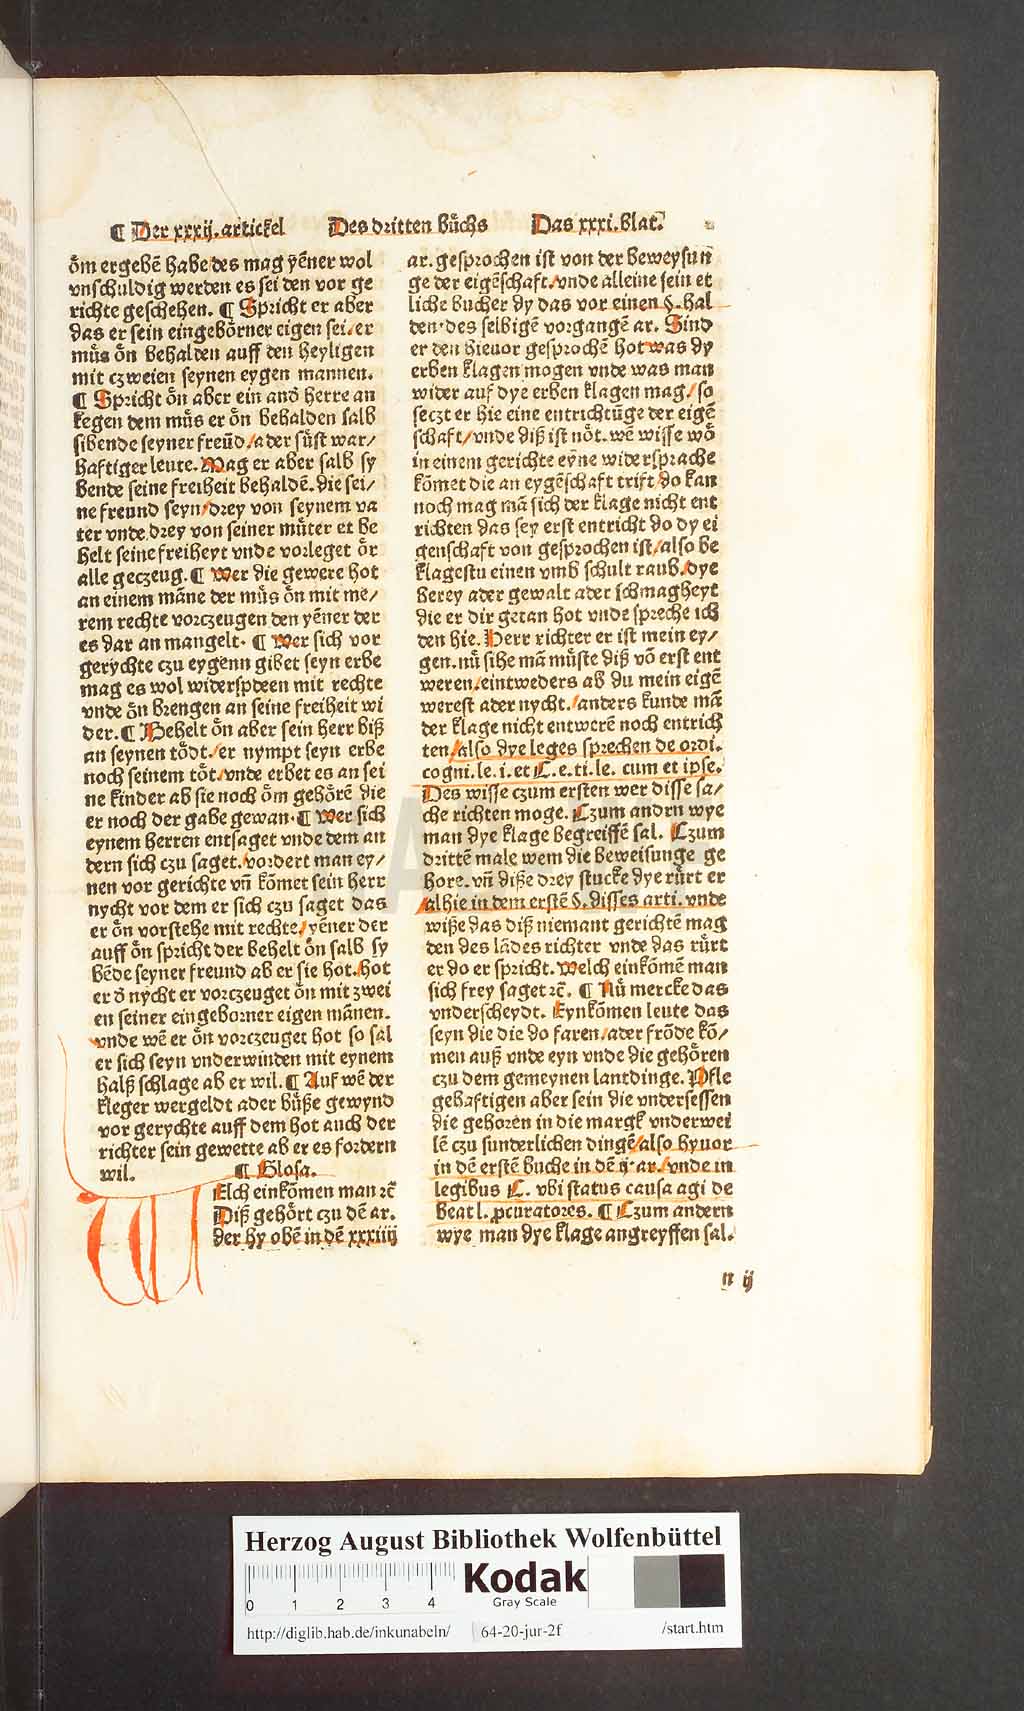 ¶ Der xxxij. artickel Des dritten bůchs Das xxxi. blat.
ȯm ergebē habe des mag yēner wol
vnschuldig werden es sei den vor ge
richte geschehen. ¶ Spricht er aber
das er sein eingebȯrner eigen sei/ er
můs ȯn behalden auff den heyligen
mit czweien seynen eygen mannen.
¶ Spricht ȯn aber ein and̄ herre an
kegen dem můs er ȯn behalden salb
sibende seyner freūd/ ader sůst war/
haftiger leute. Mag er aber salb sy
bende seine freiheit behaldē. die sei/
ne freund seyn/ drey von seynem va
ter vnde drey von seiner můter et be
helt seine freiheyt vnde vorleget ȯr
alle geczeug. ¶ Wer die gewere hot
an einem māne der můs ȯn mit me/
rem rechte vorczeugen den yēner der
es dar an mangelt. ¶ Wer sich vor
gerychte czu eygenn gibet seyn erbe
mag es wol widerspdeen mit rechte
vnde ȯn brengen an seine freiheit wi
der. ¶ Behelt ȯn aber sein herr biß
an seynen tȯdt/ er nympt seyn erbe
noch seinem tȯt/ vnde erbet es an sei
ne kinder ab sie noch ȯm gehȯrē die
er noch der gabe gewan. ¶ Wer sich
eynem herren entsaget vnde dem an
dern sich czu saget/ vordert man ey/
nen vor gerichte vn̄ kȯmet sein herr
nycht vor dem er sich czu saget das
er ȯn vorstehe mit rechte/ yēner der
auff ȯn spricht der behelt ȯn salb sy
bēde seyner freund ab er sie hot. hot
er d̄ nycht er vorczeuget ȯn mit zwei
en seiner eingeborner eigen mānen.
vnde wē er ȯn vorczeuget hot so sal
er sich seyn vnderwinden mit eynem
halß schlage ab er wil. ¶ Auf wē der
kleger wergeldt ader bůße gewynd
vor gerychte auff dem hot auch der
richter sein gewette ab er es fordern
wil. ¶ Glosa.
WElch einkȯmen man ꝛc̄
Diß gehȯrt czu dē ar.
der hy obē in dē xxxiiij
ar. gesprochen ist von der beweysun
ge der eigēschaft/ vnde alleine sein et
liche bucher dy das vor einen §. hal
den. des selbigē vorgangē ar. Sind
er den hieuor gesprochē hot was dy
erben klagen mogen vnde was man
wider auf dye erben klagen mag/ so
seczt er hie eine entrichtůge der eigē
schaft/ vnde diß ist nȯt. wē wisse wȯ
in einem gerichte eyne widersprache
kȯmet die an eygēschaft trift/ do kan
noch mag mā sich der klage nicht ent
richten das sey erst entricht do dy ei
genschaft von gesprochen ist/ also be
klagestu einen vmb schult raub/ dye
berey ader gewalt ader schmagheyt
die er dir getan hot vnde spreche ich
den hie. Herr richter er ist mein ey/
gen. nů sihe mā můste diß vō erst ent
weren/ eintweders ab du mein eigē
werest ader nycht/ anders kunde mā
der klage nicht entwerē noch entrich
ten/ also dye leges sprechen de ordi.
cogni. le. i. et C. e. ti. le. cum et ipse.
Des wisse czum ersten wer disse sa/
che richten moge. Czum andrn wye
man dye klage begreiffē sal. Czum
drittē male wem die beweisunge ge
hore. vn̄ diße drey stucke dye růrt er
alhie in dem erstē §. disses arti. vnde
wiße das diß niemant gerichtē mag
den des lādes richter vnde das růrt
er do er spricht. Welch einkȯmē man
sich frey saget ꝛc̄. ¶ Nů mercke das
vnderscheydt. Eynkȯmen leute das
seyn die die do faren/ ader frȯde kȯ/
men auß vnde eyn vnde die gehȯren
czu dem gemeynen lantdinge. Pfle
gehaftigen aber sein die vndersessen
die gehoren in die margk vnderwei
lē czu sunderlichen dingē/ also hyuor
in dē erstē buche in dē ij. ar/ vnde in
legibus C. vbi status causa agi de
beat l. ꝓcuratores. ¶ Czum andern
wye man dye klage angreyffen sal.
n ij
Herzog August Bibliothek Wolfenbüttel
0 1 2 3 4
Kodak
Gray Scale
http://diglib.hab.de/inkunabeln/ 64-20-jur-2f /start.htm